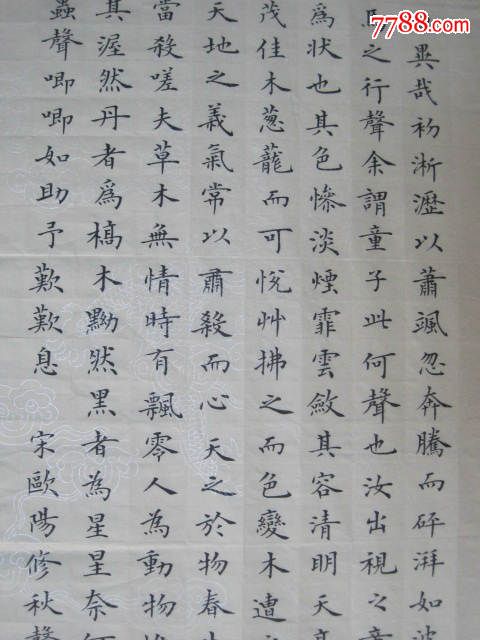 異哉初淅瀝以蕭颯忽奔騰而砰湃如
之行聲余謂童子此何聲也汝出視之
爲狀也其色慘淡煙霏雲斂其容清明天
茂佳木葱蘢而可悅艸拂之而色變木遭之
天地之義氣常以肅殺而心 天之於物春
當殺嗟夫草木無情時有飄零人為動物
其渥然丹者爲槁木黝然黑者為星星奈
蟲聲唧唧如助予歎歎息 宋歐陽修秋聲
7788.com